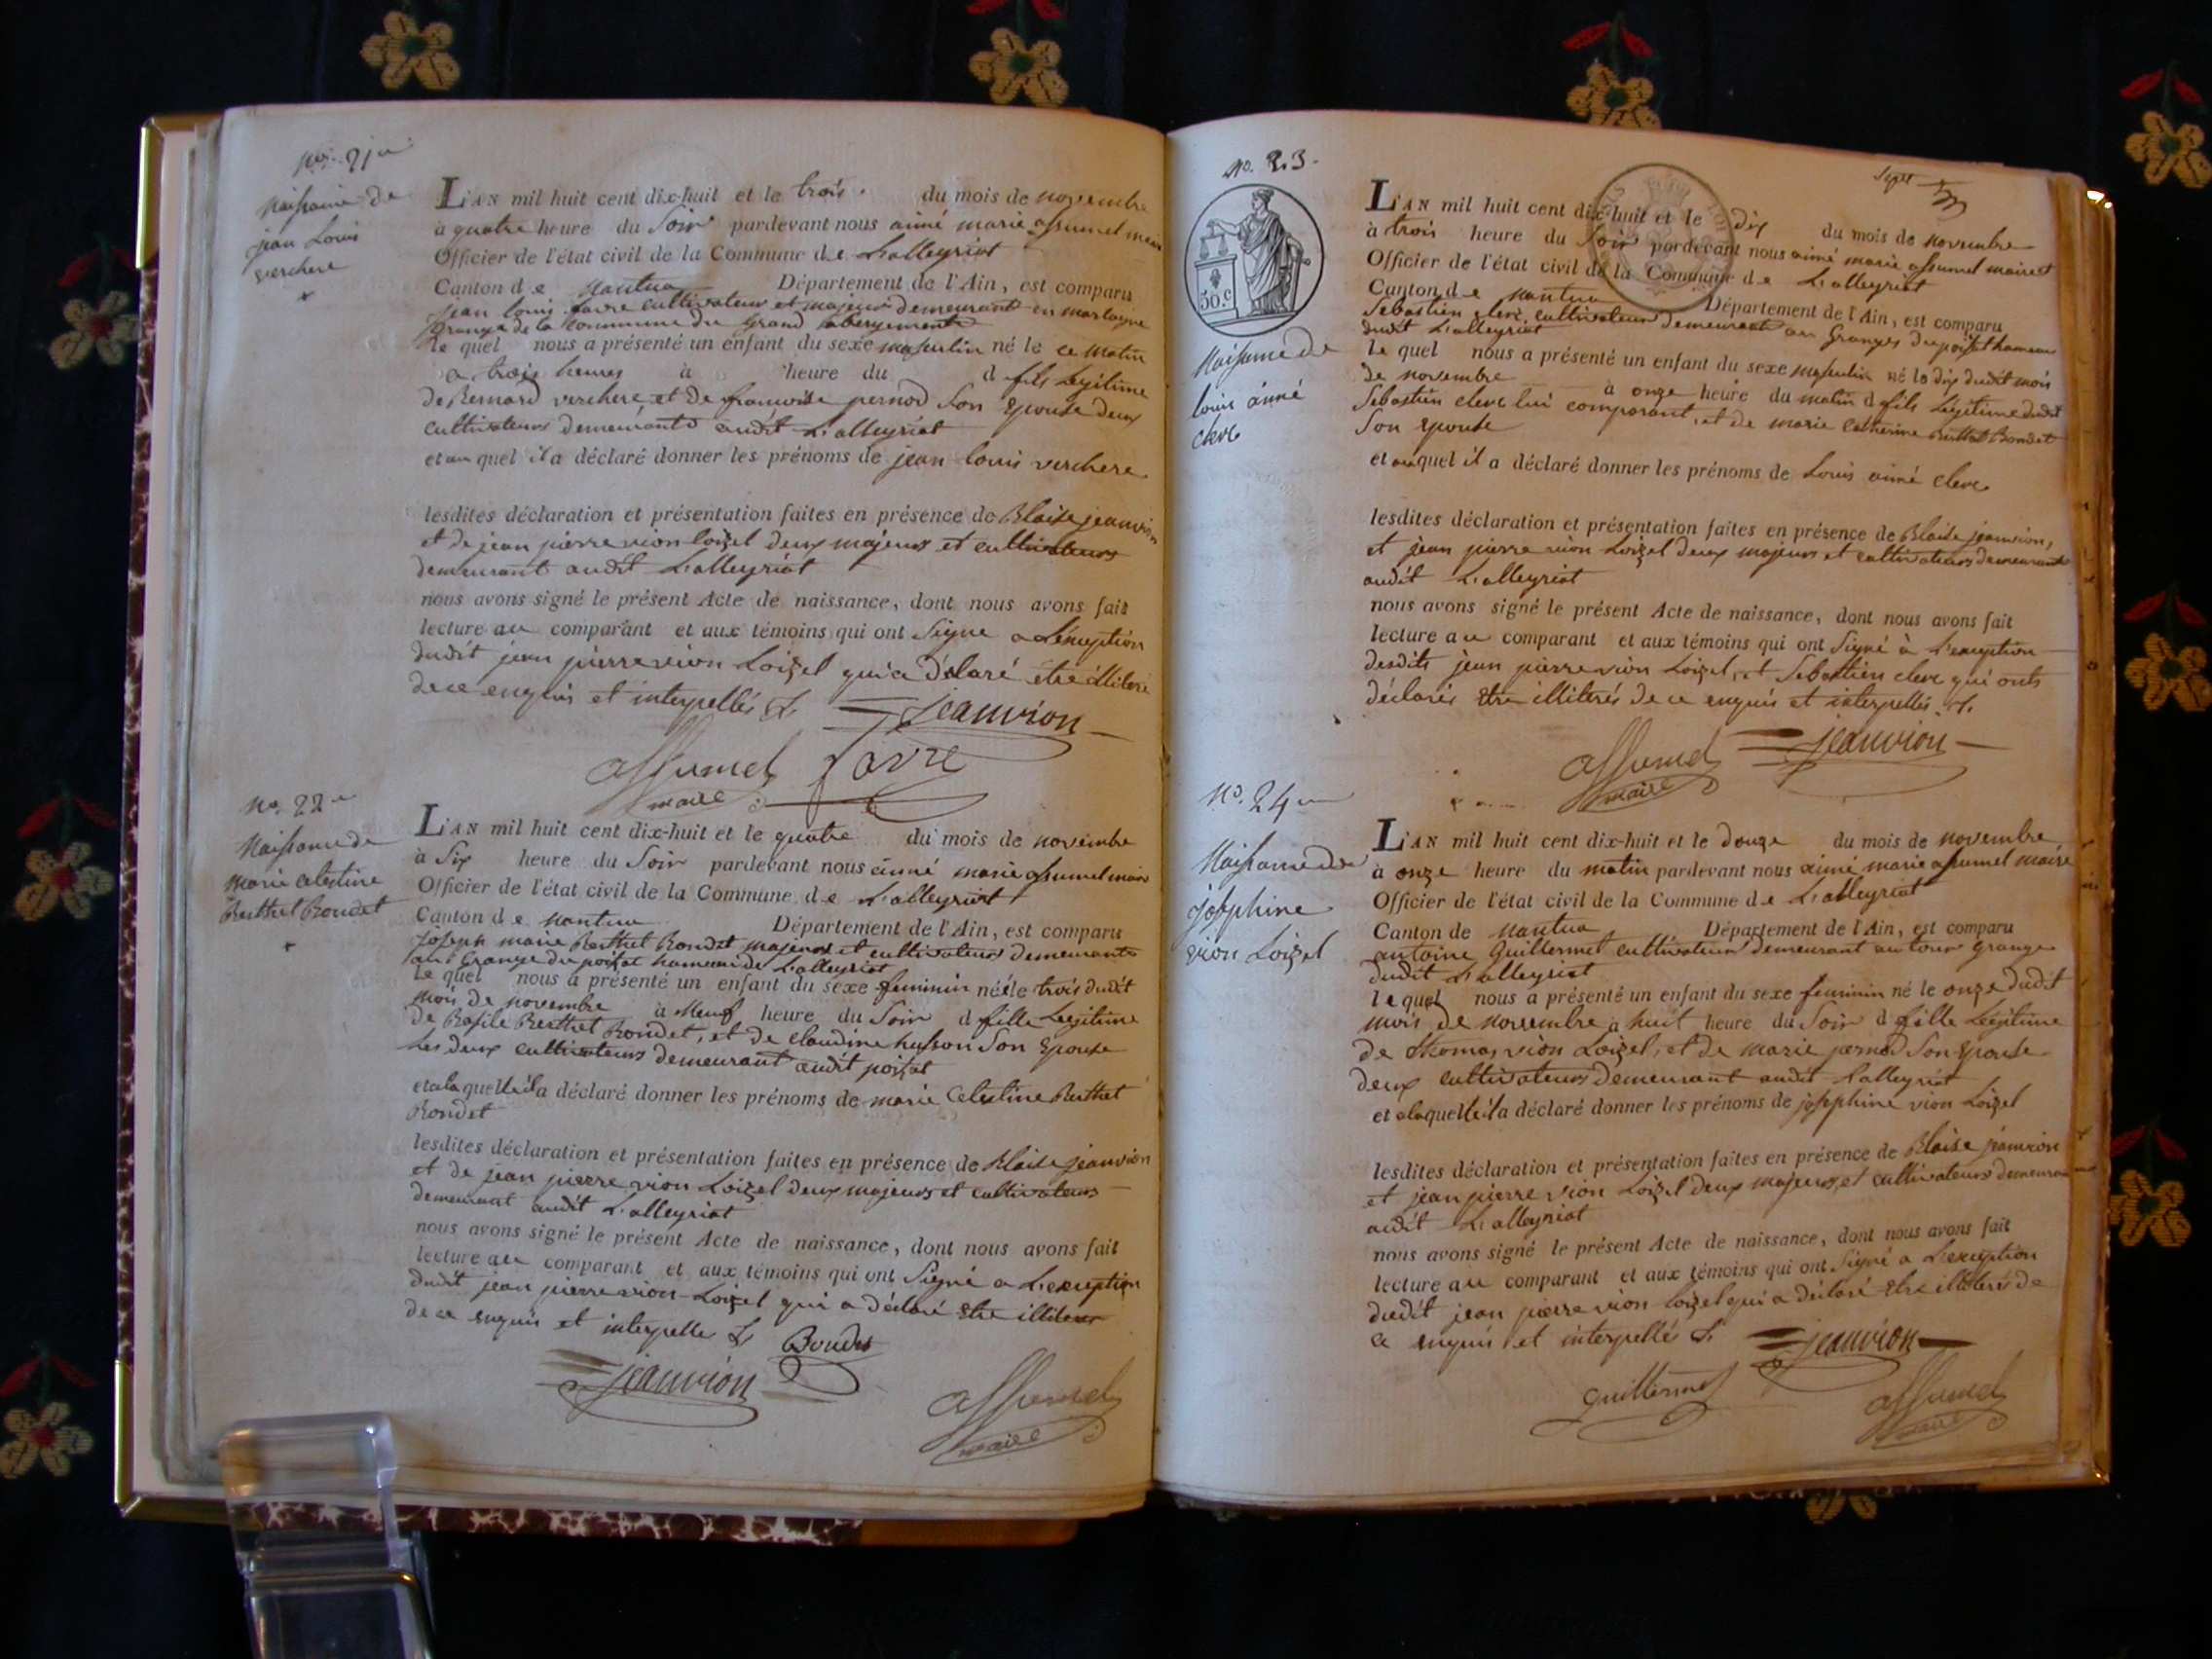 No. 21
Naissance de
jean Louis
verchere
L'AN mil huit cent dix-huit et le trois du mois de novembre
à quatre heure du Soir pardevant nous aimé marie assumel maire
Officier de l'état civil de la Commune de L'alleyriat
Canton de Nantua Département de l'Ain, est comparu
jean louis favre cultivateur et majeur demeurant en
grange de la commune du grand abergement
le quel nous a présenté un enfant du sexe masculin né le ce matin
a trois heures à heure du d fils Legitime
de Bernard verchere et de francoise pernod Son Epouse deux
cultivateurs demeurants audit L'alleyriat
et au quel il a déclaré donner les prénoms de jean Louis verchere
lesdites déclaration et présentation faites en présence de Blaise jeanvion
et de jean pierre vion Loizel deux majeurs et cultivateurs
demeurant audit L'alleyriat
nous avons signé le présent Acte de naissance, dont nous avons fait
lecture au comparant et aux témoins qui ont Signe a L'exception
dudit jean pierre vion Loizel qui a déclaré etre illiteré
de ce enquis et interpellés
jeanvion
assumel favre
maire
No. 22
Naissance de
marie celestine
Berthet Rondet
L'AN mil huit cent dix-huit et le quatre du mois de novembre
à Six heure du Soir pardevant nous aimé marie assumel maire
Officier de l'état civil de la Commune de L'alleyriat
Canton de Nantua Département de l'Ain, est comparu
joseph marie Berthet Rondet majeur et cultivateur demeurants
aux Grange du poizat hameau de L'alleyriat
le quel nous a présenté un enfant du sexe feminin née le trois dudit
mois de novembre à Neuf heure du Soir d fille Legitime
de Basile Berthet Rondet, et de claudine husson Son Epouse
Les deux cultivateurs demeurant audit poizat
et a la quelle il a déclaré donner les prénoms de marie Celestine Berthet
Rondet
lesdites déclaration et présentation faites en présence de Blaise jeanvion
et de jean pierre vion Loizel deux majeurs et cultivateurs
demeurant audit L'alleyriat
nous avons signé le présent Acte de naissance, dont nous avons fait
lecture au comparant et aux témoins qui ont Signé a L'exception
dudit jean pierre vion Loizel qui a déclaré etre illiteré
de ce enquis et interpelle
Rondet
jeanvion
assumel
maire
No. 23
50.c
Naissance de
louis aimé
clerc
L'AN mil huit cent dix-huit et le dix du mois de novembre
à trois heure du Soir pardevant nous aimé marie assumel maire et
Officier de l'état civil de la Commune de L'alleyriat
Canton de Nantua Département de l'Ain, est comparu
Sebastien clerc, cultivateur demeurant au Granges du poizat hameau
dudit L'alleyriat
le quel nous a présenté un enfant du sexe masculin né le dix dudit mois
de novembre à onze heure du matin d fils Legitime dudit
Sebastien clerc lui comparant, et de marie Catherine Berthet Rondet
Son Epouse
et auquel il a déclaré donner les prénoms de Louis aimé clerc
lesdites déclaration et présentation faites en présence de Blaise jeanvion,
et jean pierre vion Loizel deux majeurs et cultivateurs demeurant
audit L'alleyriat
nous avons signé le présent Acte de naissance, dont nous avons fait
lecture au comparant et aux témoins qui ont Signé à L'exception
desdits jean pierre vion Loizel, et Sebastien clerc qui onts
déclarés etre illiterés de ce enquis et interpellés
assumel jeanvion
maire
No. 24
Naissance de
josephine
vion Loizel
L'AN mil huit cent dix-huit et le douze du mois de novembre
à onze heure du matin pardevant nous aimé marie assumel maire
Officier de l'état civil de la Commune de L'alleyriat
Canton de Nantua Département de l'Ain, est comparu
antoine Guillermet cultivateur demeurant au Grange
dudit L'alleyriat
le quel nous a présenté un enfant du sexe feminin né le onze dudit
mois de novembre à huit heure du Soir d fille Legitime
de thomas vion Loizel, et de marie pernod Son Epouse
deux cultivateurs demeurant audit L'alleyriat
et a laquelle il a déclaré donner les prénoms de josephine vion Loizel
lesdites déclaration et présentation faites en présence de Blaise jeanvion
et jean pierre vion Loizel deux majeurs, et cultivateurs demeurant
audit L'alleyriat
nous avons signé le présent Acte de naissance, dont nous avons fait
lecture au comparant et aux témoins qui ont Signé a L'exception
dudit jean pierre vion loizel qui a déclaré etre illiterés de
ce enquis et interpellés
jeanvion
guillermet assumel
maire